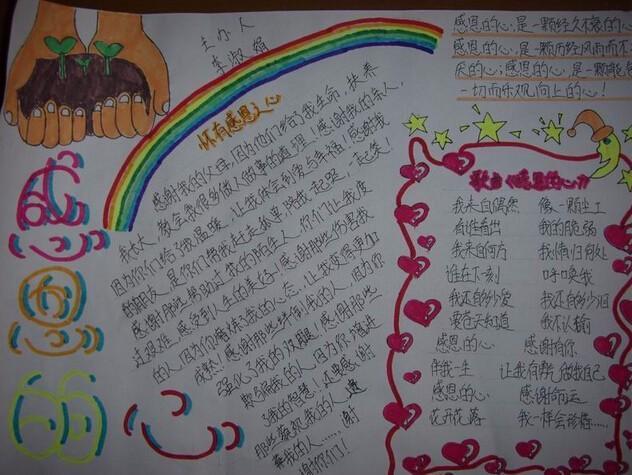 感恩的心
主办人
淑娟
怀有感恩之心
感谢我的父母,因为他们给了我生命,扶养
我长大,教会我很多做人做事的道理!感谢我的亲人,
因为你们给了我温暖,让我体会到爱与幸福!感谢我
的朋友,是你们帮我赶走孤单,陪我一起哭,一起笑!
感谢那些帮助过我的陌生人,你们让我度
过艰难,感受到人生的美好!感谢那些伤害我
的人,因为你磨练了我的心态,让我变得更加
成熟!感谢那些绊倒我的人,因为你
强化了我的双腿!感谢那些
欺骗我的人,因为你增进
了我的智慧!还要感谢
那些藐视我的人,遗
弃我的人……,谢
谢你们!
感恩的心,是一颗经久不衰的心
感恩的心,是一颗历经风雨而不
厌的心;感恩的心,是一颗能包
一切而乐观向上的心!
歌曲《感恩的心》
我来自偶然 像一颗尘土
有谁看出 我的脆弱
我来自何方 我情归何处
谁在下刻 呼唤我
我还有多少爱 我还有多少泪
要苍天知道 我不认输
感恩的心 感谢有你
伴我一生 让我有勇气做我自己
感恩的心 感谢命运
花开花落 我一样会珍惜……